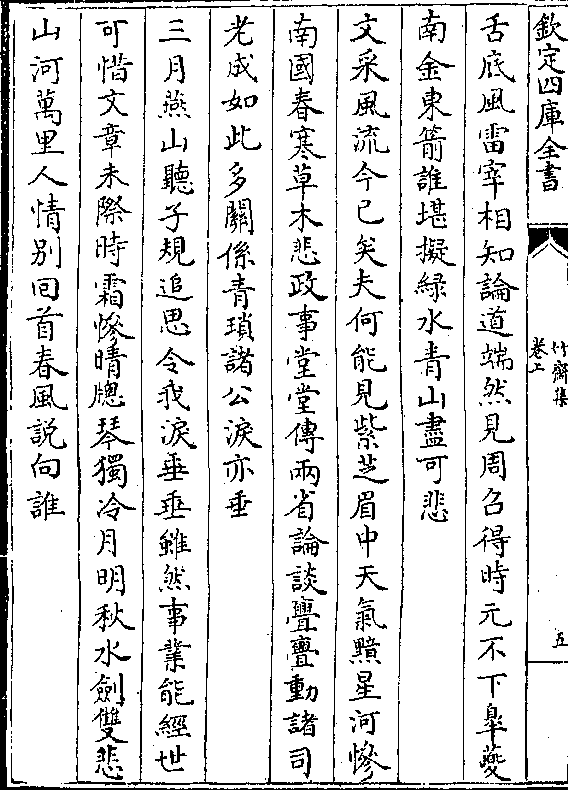 欽定四庫全書
竹齋集
卷上
五
舌底風雷宰相知論道端然見周召得時元不下臯夔
南金東箭誰堪擬綠水青山盡可悲
文采風流今已矣夫何能見紫芝眉中天氣黯星河慘
南國春寒草木悲政事堂堂傳兩省論談亹亹動諸司
老成如此多關係青瑣諸公淚亦垂
三月燕山聽子規追思令我淚垂垂雖然事業能經世
可惜文章未際時霜慘晴牕琴獨冷月明秋水劍雙悲
山河萬里人情別回首春風説向誰